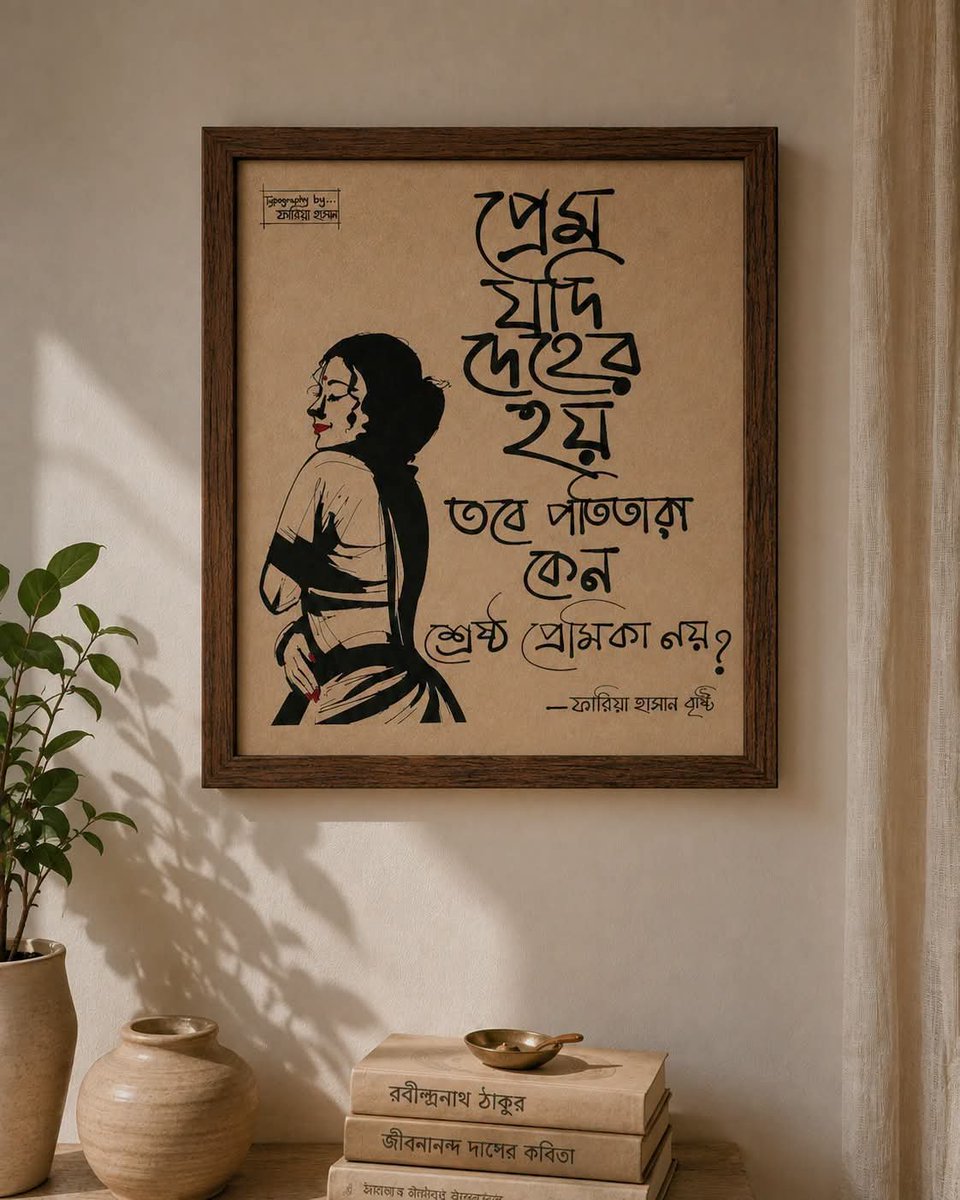 Typography by...
ফারিয়া হাসান
প্রেম
যদি
দেহের
হয়
তবে পতিতারা
কেন
শ্রেষ্ঠ প্রেমিকা নয়?
— ফারিয়া হাসান বৃষ্টি
রবীন্দ্রনাথ ঠাকুর
জীবনানন্দ দাসের কবিতা